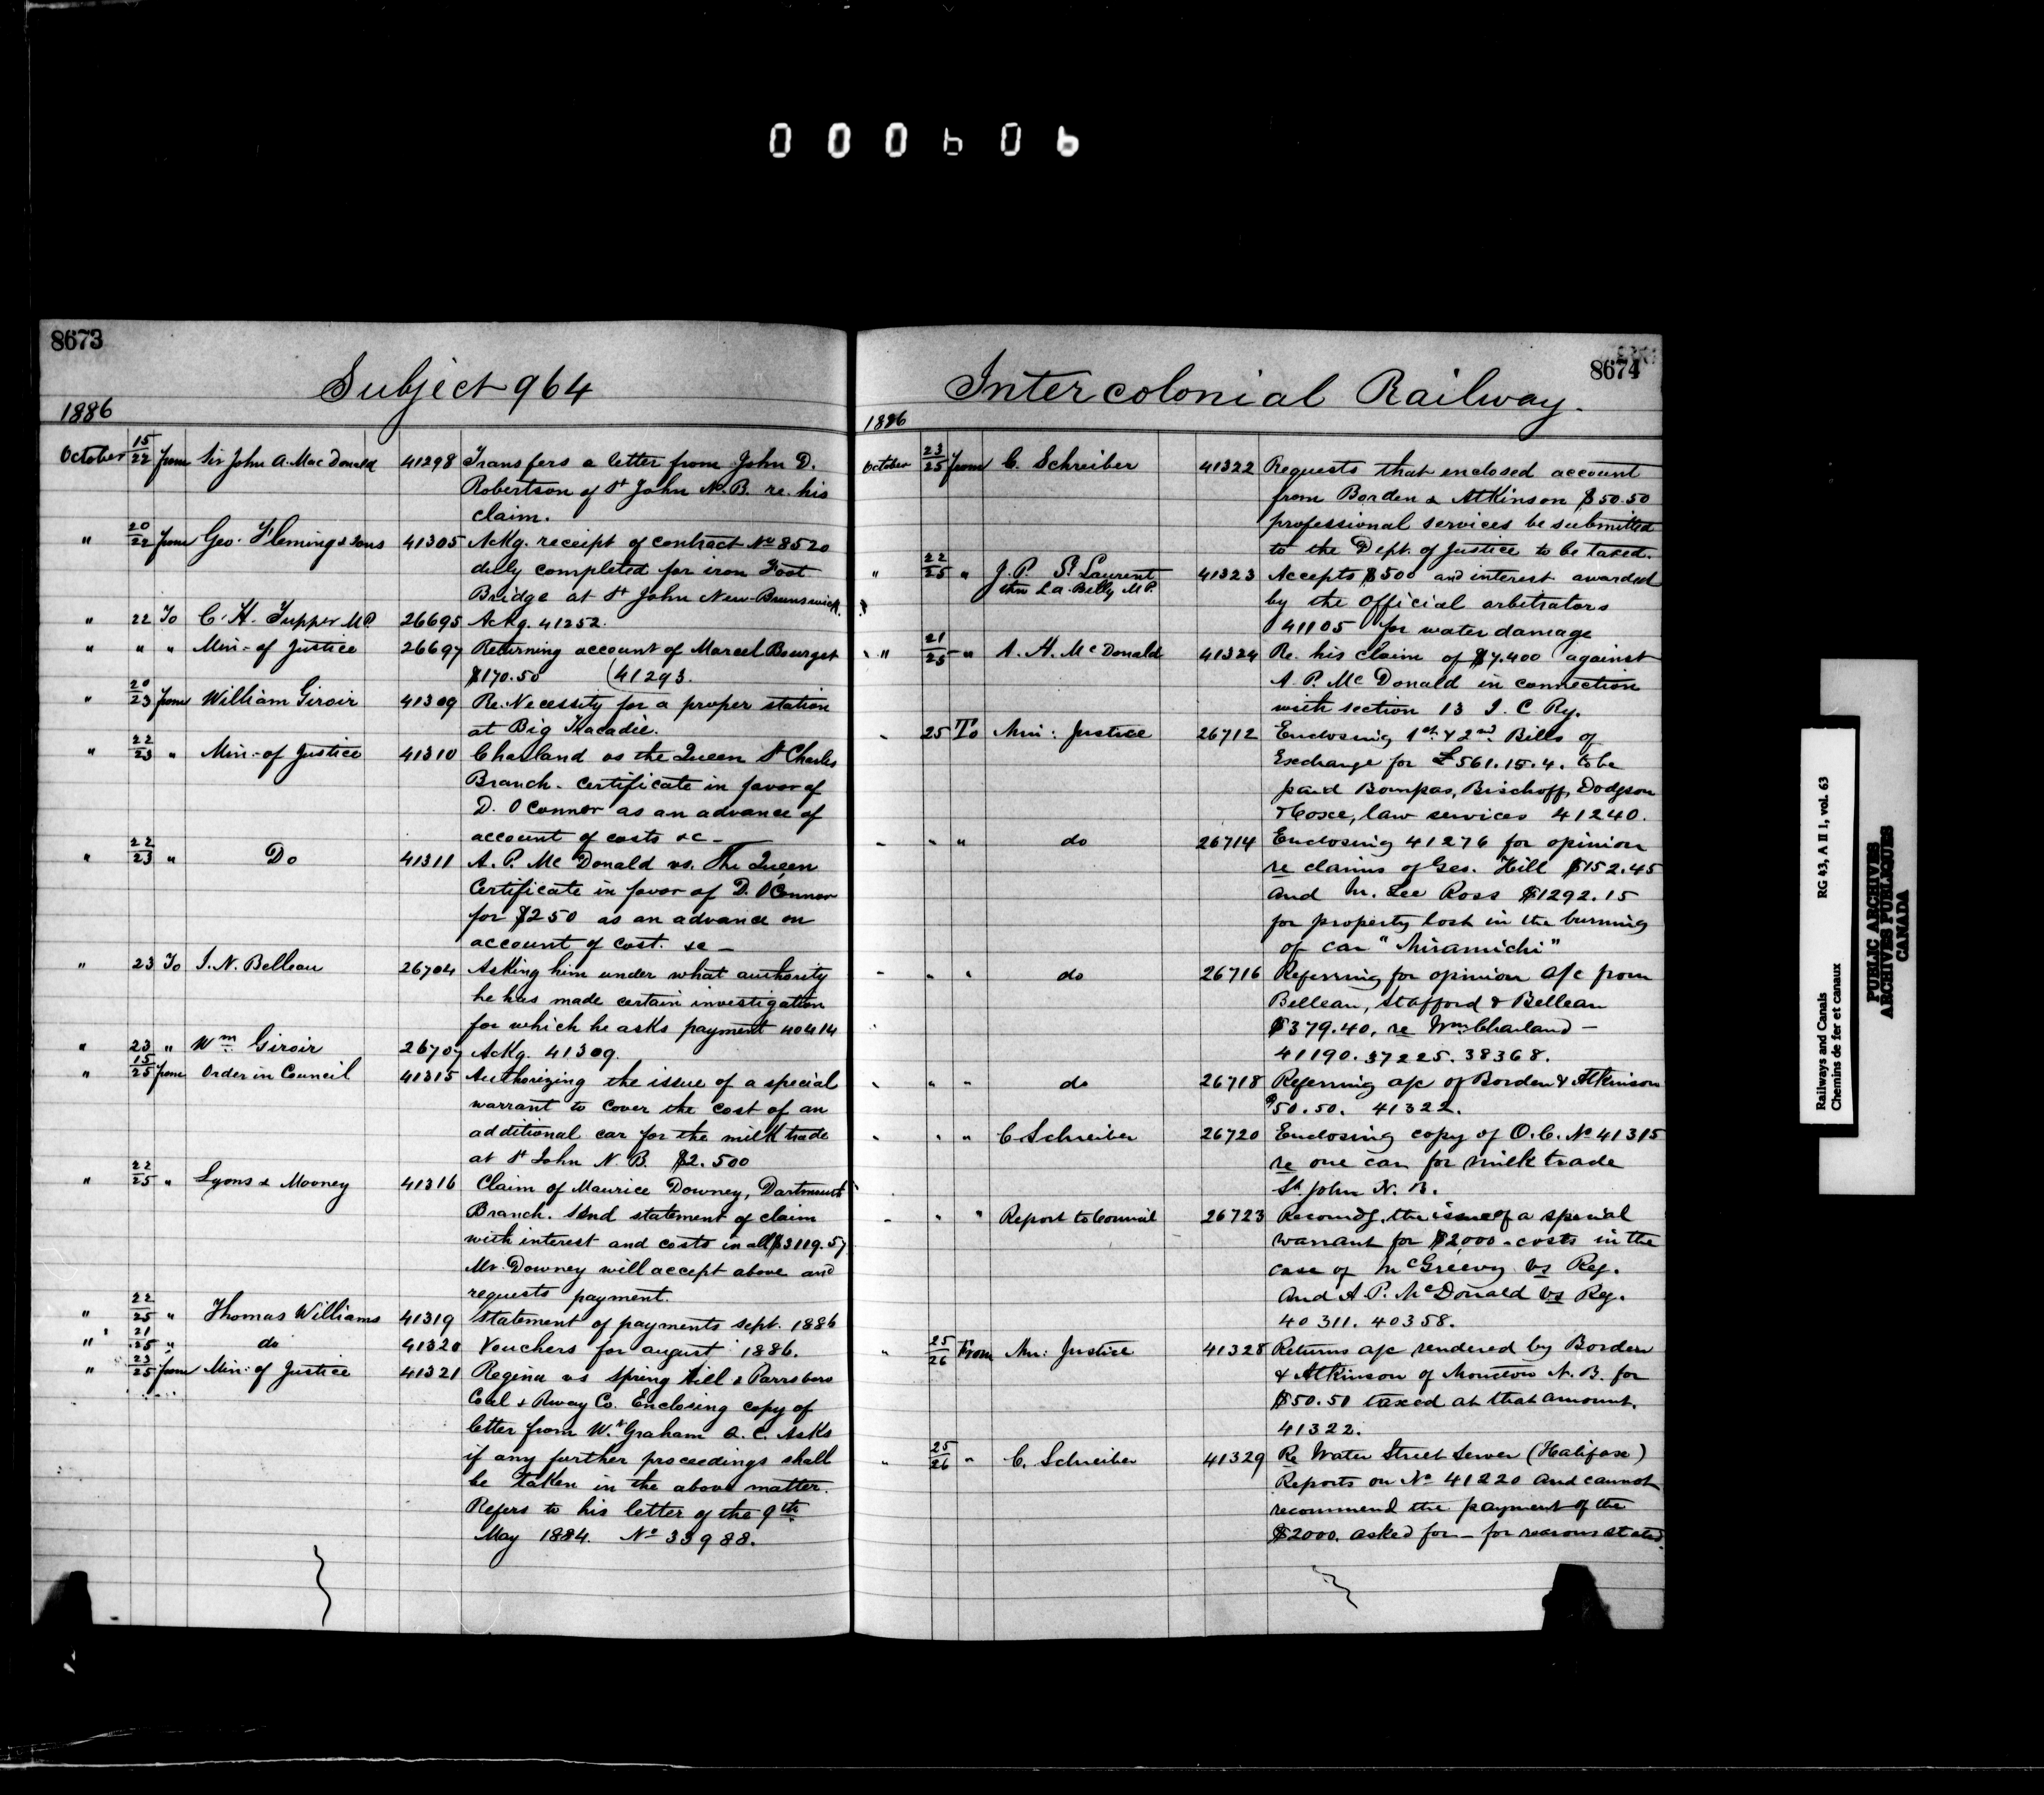 000606
8673
Subject 964
1886
October 15/22 from Sir John A. MacDonald 41298 Transfers a letter from John D.
Robertson of St John N.B. re. his
claim.
" 20/22 from Geo. Flemings & Sons 41305 Ackg. receipt of contract No 8520
duly completed for iron Foot
Bridge at St John New-Brunswick.
" 22 To C. H. Tupper M.P. 26695 Ackg. 41252.
" " " Min: of Justice 26697 Returning account of Marcel Bourget
$170.50 (41293.
" 20/23 from William Giroir 41309 Re. Necessity for a proper station
at Big Tracadie.
" 22/23 " Min: of Justice 41310 Charland vs the Queen St Charles
Branch. Certificate in favor of
D. O'Connor as an advance of
account of costs &c -
" 22/23 " Do 41311 A. P. McDonald vs. The Queen
Certificate in favor of D. O'Connor
for $250 as an advance on
account of cost. &c -
" 23 To I. N. Belleau 26704 Asking him under what authority
he has made certain investigation
for which he asks payment 40414
" 23 " Wm Giroir 26707 Ackg. 41309.
" 15/25 from Order in Council 41315 Authorizing the issue of a special
warrant to cover the cost of an
additional car for the milk trade
at St John N. B. $2.500
" 22/25 " Lyons & Mooney 41316 Claim of Maurice Downey, Dartmouth
Branch. Send statement of claim
with interest and costs in all $3119.57
Mr. Downey will accept above and
requests payment.
" 22/25 " Thomas Williams 41319 Statement of payments sept. 1886
" 21/25 " do 41320 Vouchers for august 1886.
" 23/25 from Min: of Justice 41321 Regina vs Spring Hill & Parrsboro
Coal & Rway Co. Enclosing copy of
letter from W. Graham Q. C. Asks
if any further proceedings shall
be taken in the above matter.
Refers to his letter of the 9th
May 1884. No 33988.
8674
Intercolonial Railway.
1886
October 23/25 from C. Schreiber 41322 Requests that enclosed account
from Borden & Atkinson $50.50
professional services be submitted
to the Dept. of Justice to be taxed.
" 22/25 " J. P. St Laurent 41323 Accepts $500 and interest awarded
thro La. Billy M.P.
by the Official arbitrators
41105 for water damage
" 21/25 " A. H. McDonald 41324 Re. his claim of $7.400 against
A. P. McDonald in connection
with section 13 I. C. Ry.
" 25 To Min: Justice 26712 Enclosing 1st & 2nd Bills of
Exchange for £561.15.4. to be
paid Bompas, Bischoff, Dodgson
& Coxe, law services 41240.
" " " do 26714 Enclosing 41276 for opinion
re claims of Geo. Hill $152.45
and M. Lee Ross $1292.15
for property lost in the burning
of car "Miramichi"
" " " do 26716 Referring for opinion a/c from
Belleau, Stafford & Belleau
$379.40. re Wm Charland -
41190. 37225. 38368.
" " " do 26718 Referring a/c of Borden & Atkinson
$50.50. 41322.
" " " C Schreiber 26720 Enclosing copy of O.C. No 41315
re one car for milk trade
St. John N. B.
" " " Report to Council 26723 Recomdg. the issue of a special
warrant for $2000. costs in the
case of McGreevy vs Reg.
And A. P. McDonald vs Reg.
40311. 40358.
" 25/26 From Min: Justice 41328 Returns a/c rendered by Borden
& Atkinson of Moncton N. B. for
$50.50 taxed at that amount.
41322.
" 25/26 " C. Schreiber 41329 Re Water Street Sewer (Halifax)
Reports on No 41220 and cannot
recommend the payment of the
$2000. asked for - for reasons stated.
Railways and Canals RG 43, A II 1, vol. 63
Chemins de fer et canaux
PUBLIC ARCHIVES
ARCHIVES PUBLIQUES
CANADA